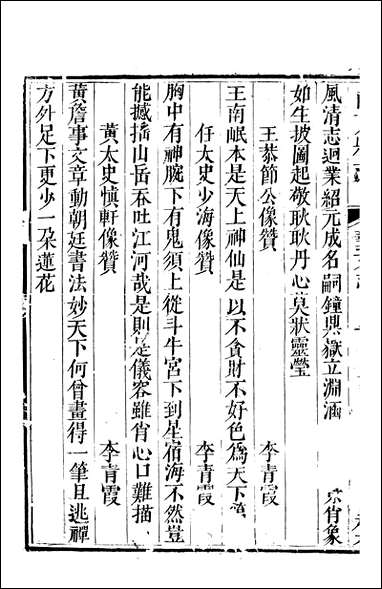 風清志迴業紹元成名嗣鐘㒷嶽立淵涵 宗肖象
如生披圖起敬耿耿丹心莫狀靈瑩
王恭節公像贊 李青霞
王南岷本是天上神仙是以不貪財不好色爲天下第
任太史少海像贊 李青霞
胸中有神腕下有鬼須上從斗牛宮下到星宿海不然豈
能撼搖山岳吞吐江河哉是則是儀容雖肖心口難描
黃太史慎軒像贊 李青霞
黃詹事文章動朝廷書法妙天下何曾畫得一筆且逃禪
方外足下更少一朶蓮花